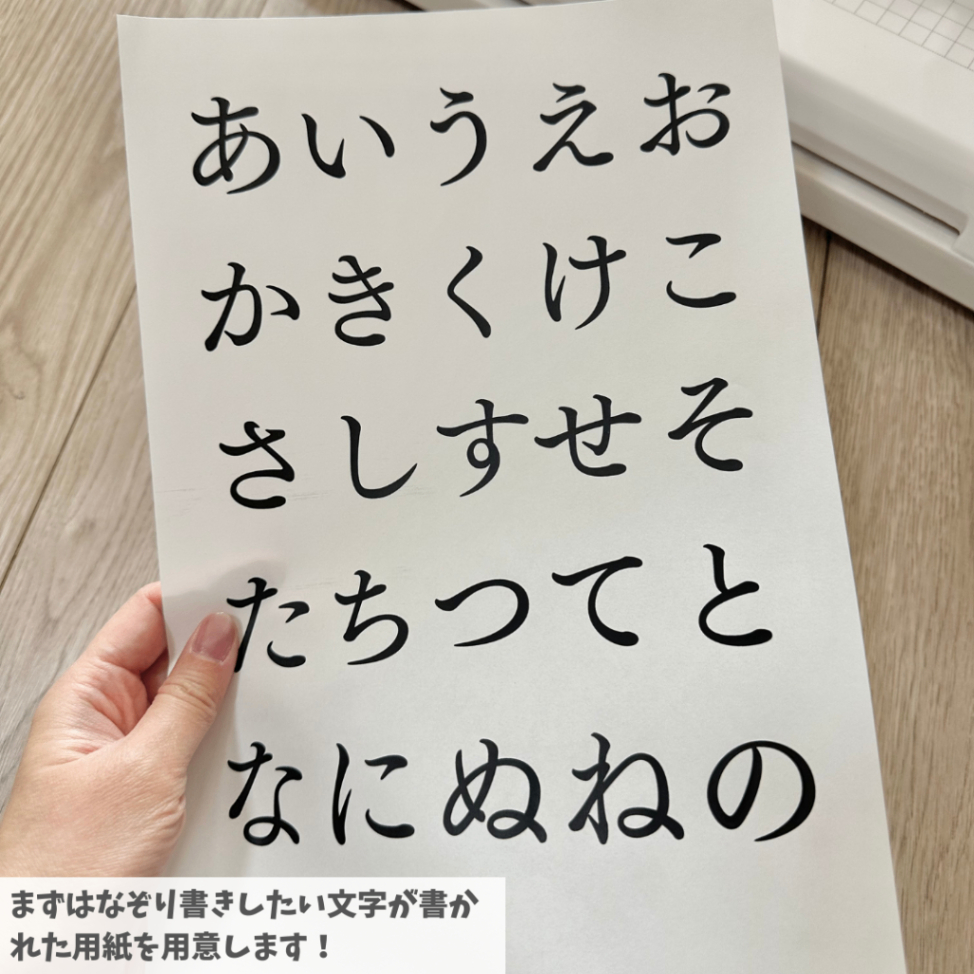 あいうえお
かきくけこ
さしすせそ
たちつてと
なにぬねの
まずはなぞり書きしたい文字が書か
れた用紙を用意します！